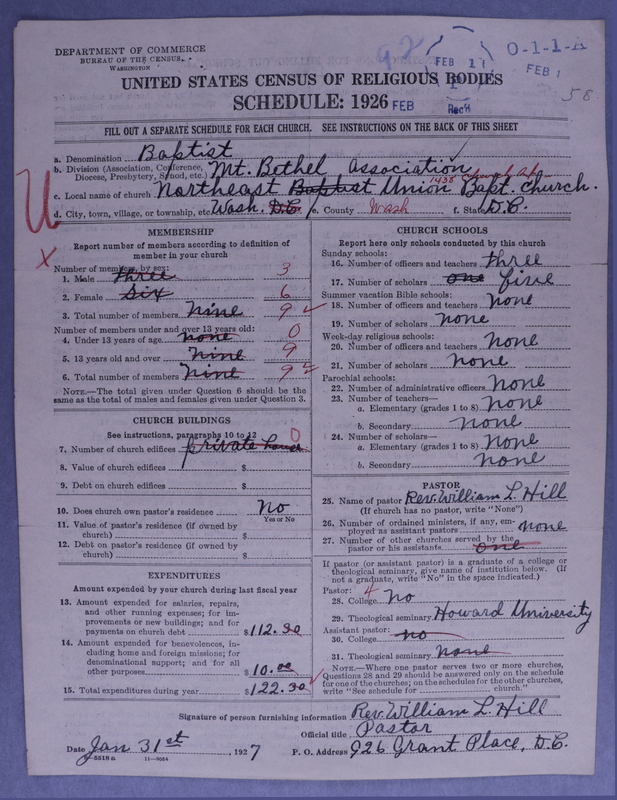 DEPARTMENT OF COMMERCE
BUREAU OF THE CENSUS
WASHINGTON
92
FEB 11
Rec'd
0-1-1-A
FEB 1
58
UNITED STATES CENSUS OF RELIGIOUS BODIES
SCHEDULE: 1926 FEB
FILL OUT A SEPARATE SCHEDULE FOR EACH CHURCH. SEE INSTRUCTIONS ON THE BACK OF THIS SHEET
a. Denomination Baptist
b. Division (Association, Conference, Diocese, Presbytery, Synod, etc.) Mt. Bethel Association
1438
c. Local name of church Northeast Baptist Union Bapt. Church.
d. City, town, village, or township, etc. Wash. D.C. e. County Wash f. State D.C.
MEMBERSHIP
Report number of members according to definition of
member in your church
X
Number of members, by sex:
1. Male three 3
2. Female six 6
3. Total number of members nine 9
Number of members under and over 13 years old:
4. Under 13 years of age none 0
5. 13 years old and over nine 9
6. Total number of members nine 9
NOTE.—The total given under Question 6 should be the
same as the total of males and females given under Question 3.
CHURCH BUILDINGS
See instructions, paragraphs 10 to 12
7. Number of church edifices private house 0
8. Value of church edifices $
9. Debt on church edifices $
10. Does church own pastor's residence No
Yes or No
11. Value of pastor's residence (if owned by
church) $
12. Debt on pastor's residence (if owned by
church) $
EXPENDITURES
Amount expended by your church during last fiscal year
13. Amount expended for salaries, repairs,
and other running expenses; for im-
provements or new buildings; and for
payments on church debt $112.30
14. Amount expended for benevolences, in-
cluding home and foreign missions; for
denominational support; and for all
other purposes $10.00
15. Total expenditures during year $122.30
CHURCH SCHOOLS
Report here only schools conducted by this church
Sunday schools:
16. Number of officers and teachers three
17. Number of scholars one five
Summer vacation Bible schools:
18. Number of officers and teachers none
19. Number of scholars none
Week-day religious schools:
20. Number of officers and teachers none
21. Number of scholars none
Parochial schools:
22. Number of administrative officers none
23. Number of teachers—
a. Elementary (grades 1 to 8) none
b. Secondary none
24. Number of scholars—
a. Elementary (grades 1 to 8) none
b. Secondary none
PASTOR
25. Name of pastor Rev. William L. Hill
(If church has no pastor, write "None")
26. Number of ordained ministers, if any, em-
ployed as assistant pastors none
27. Number of other churches served by the
pastor or his assistants one
If pastor (or assistant pastor) is a graduate of a college or
theological seminary, give name of institution below. (If
not a graduate, write "No" in the space indicated.)
Pastor: 4
28. College No
29. Theological seminary Howard University
Assistant pastor:
30. College no
31. Theological seminary none
NOTE.—Where one pastor serves two or more churches,
Questions 28 and 29 should be answered only on the schedule
for one of the churches; on the schedules for the other churches,
write "See schedule for church."
Signature of person furnishing information Rev. William L. Hill
Official title Pastor
Date Jan 31st, 1927 P. O. Address 926 Grant Place, D.C.
8-5518a 11-9054